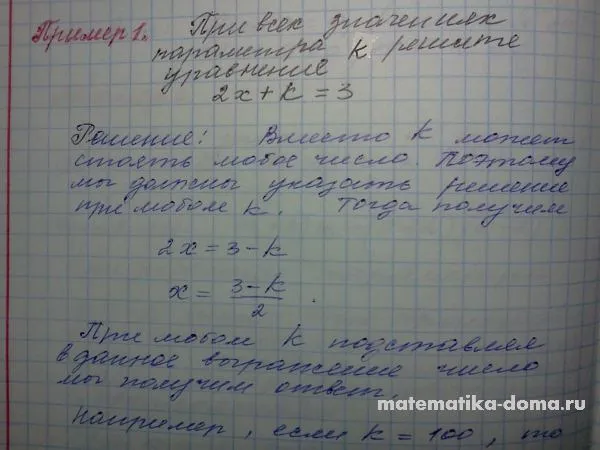 Пример 1. При всех значениях
параметра k решите
уравнение
2x + k = 3
Решение: Вместо k может
стоять любое число. Поэтому
мы должны указать решение
при любом k. Тогда получим
2x = 3 - k
x = \frac{3-k}{2}.
При любом k подставляя
в данное выражение число
мы получим ответ.
Например, если k = 100, то
matematika-doma.ru